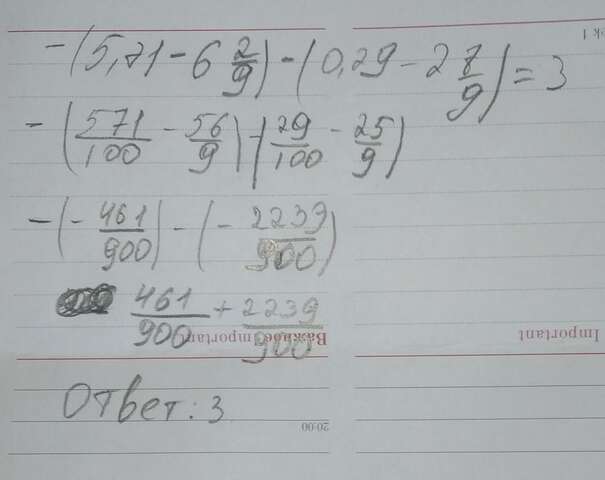 -(5,71 - 6 2/9) - (0,29 - 2 7/9) = 3
-(571/100 - 56/9) - (29/100 - 25/9)
-(-461/900) - (-2239/900)
461/900 + 2239/900
Важное Important
Important
Ответ: 3
20.00